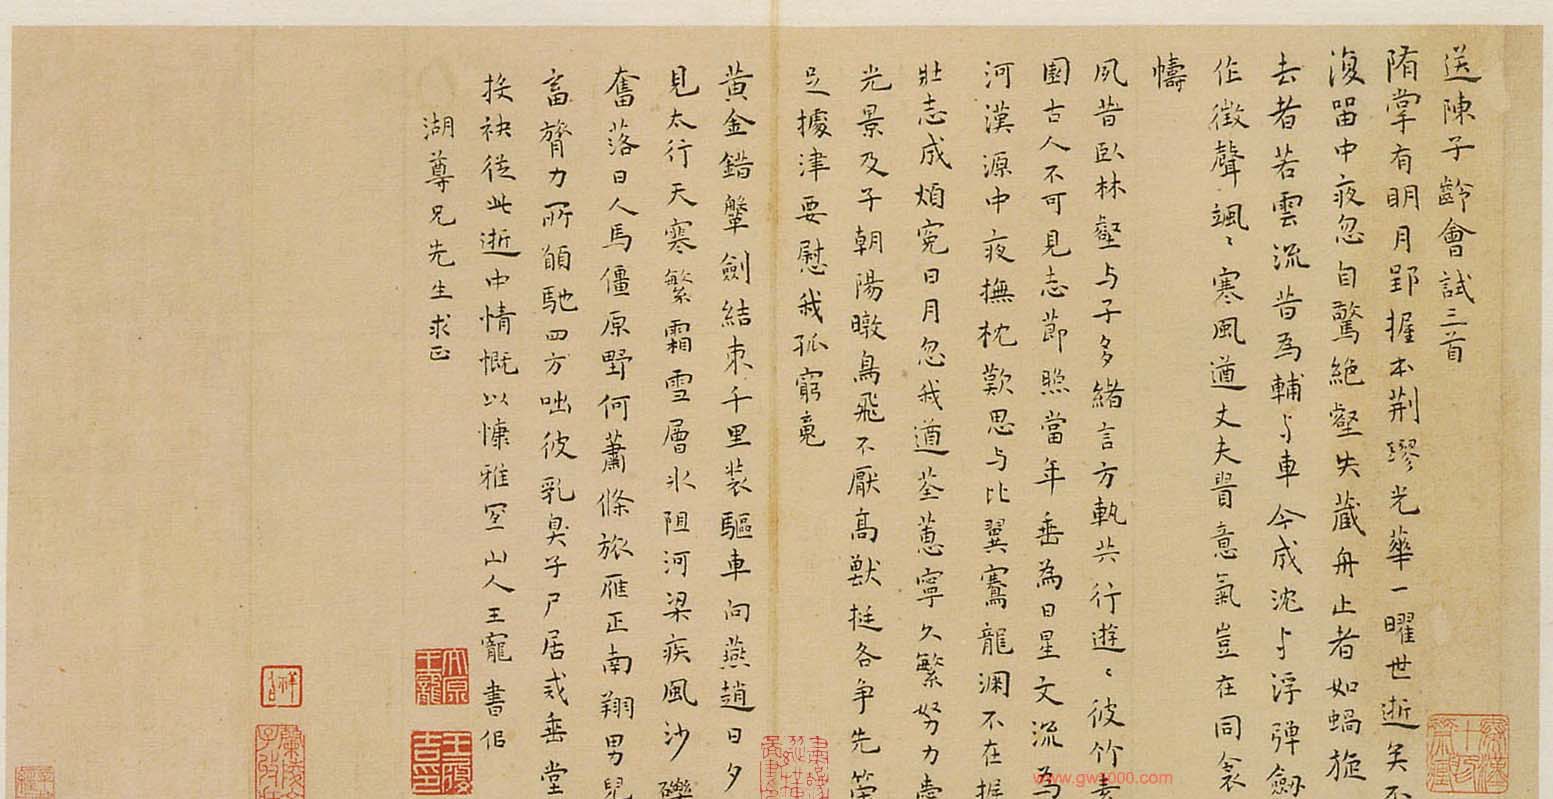 送陳子齡會試三首
隋掌有明月郢握本荆璆光華一曜世逝矣不
復留中夜忽自驚絶壑失藏舟止者如蝸旋
去者若雲流昔為輔与車今成沈与浮弹劔
作徵聲颯〻寒風遒丈夫負意氣豈在同衾
幬
夙昔臥林壑与子多緒言方執共行遊〻彼竹素
園古人不可見志節照當年垂為日星文流為
河漢源中夜撫枕歎思与比翼騫龍渊不在握
壯志成煩寃日月忽我遒荃蕙寧久繁努力
光景及子朝陽暾鳥飛不厭高獸挺各争先
足據津要慰我孤窮
黄金錯鞶劍結束千里装驅車向燕趙日夕
見太行天寒繁霜雪層氷阻河梁疾風沙礫
奮落日人馬僵原野何蕭條旅雁正南翔男兒
畜膂力所願馳四方咄彼乳臭子尸居戒垂堂
接袂從此逝中情慨以慷雅宜山人王寵書侣
湖尊兄先生求正
太原王寵
王履吉印
祥
www.gw1000.com